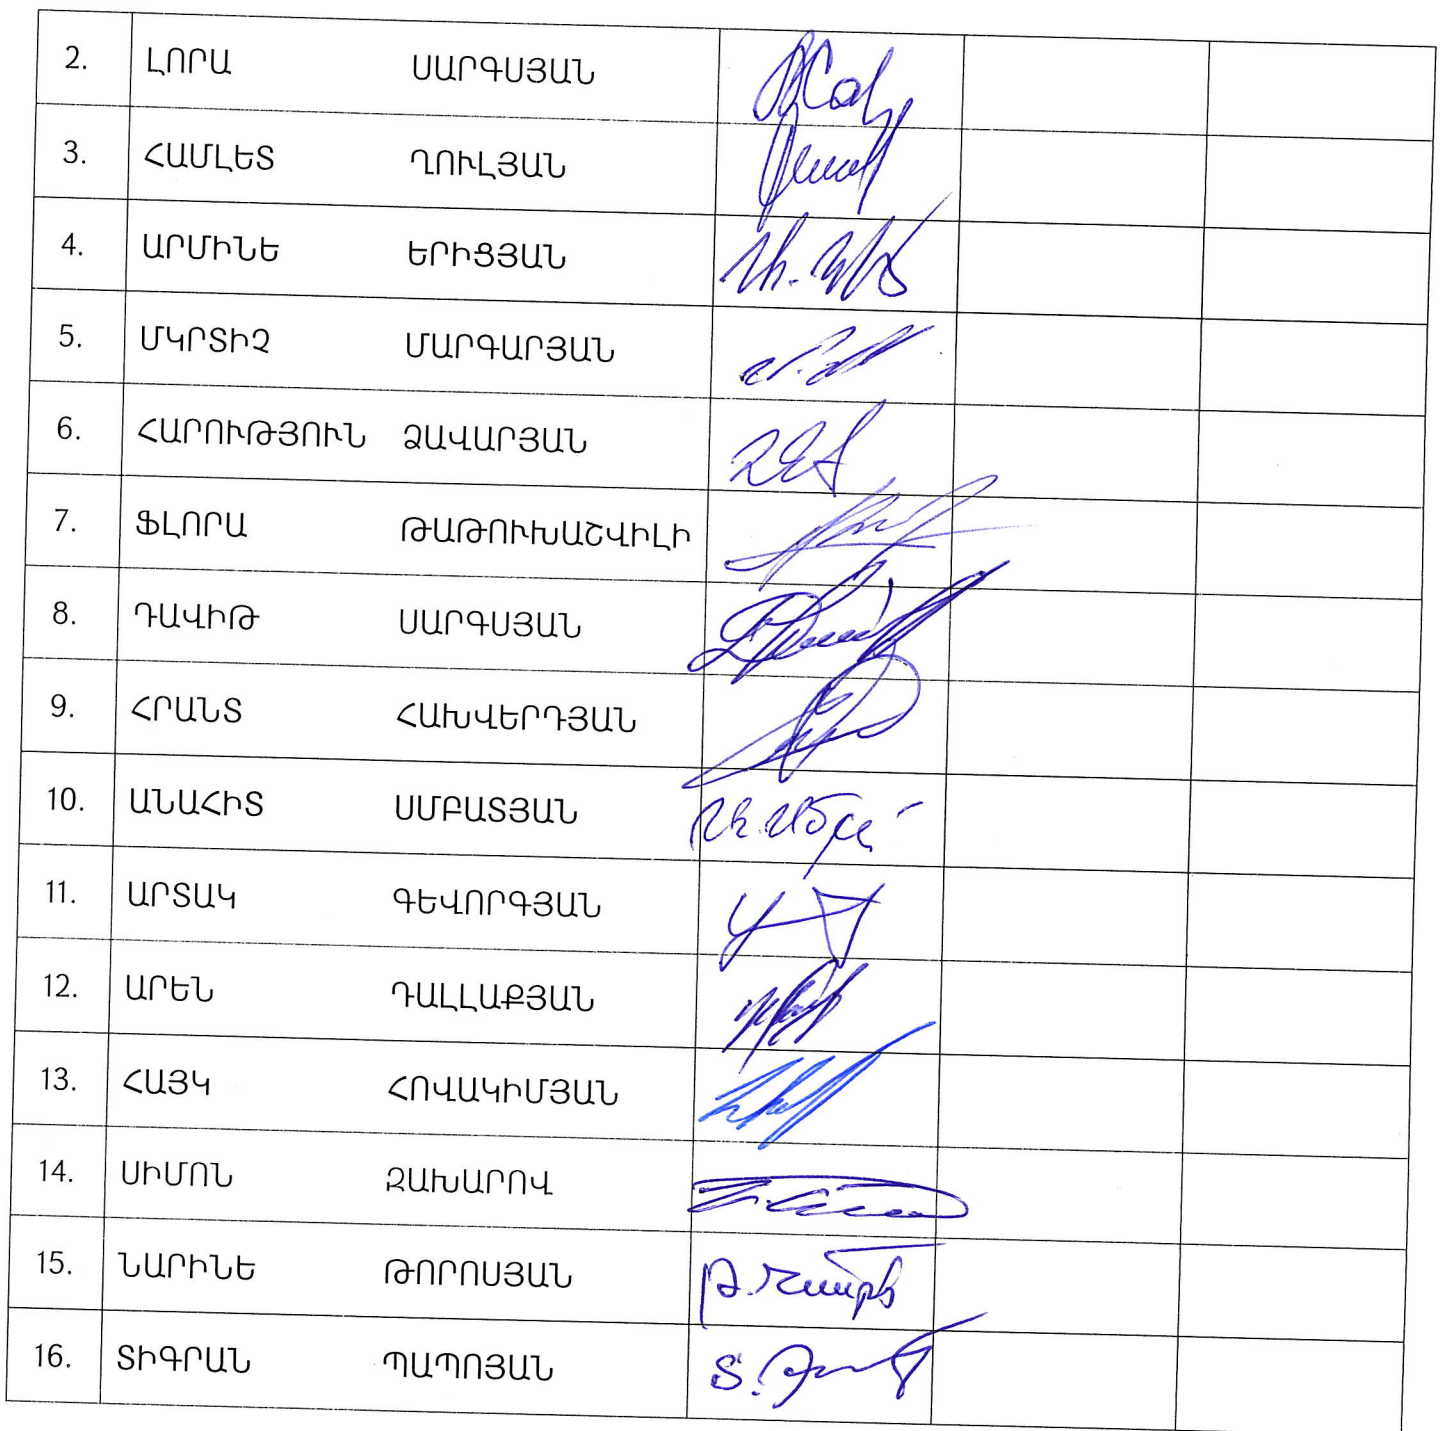 2. ԼՈՐԱ ՍԱՐԳՍՅԱՆ
3. ՀԱՄԼԵՏ ՂՈՒԼՅԱՆ
4. ԱՐՄԻՆԵ ԵՐԻՑՅԱՆ
5. ՄԿՐՏԻՉ ՄԱՐԳԱՐՅԱՆ
6. ՀԱՐՈՒԹՅՈՒՆ ՁԱՎԱՐՅԱՆ
7. ՖԼՈՐԱ ԹԱԹՈՒԽԱՇՎԻԼԻ
8. ԴԱՎԻԹ ՍԱՐԳՍՅԱՆ
9. ՀՐԱՆՏ ՀԱԽՎԵՐԴՅԱՆ
10. ԱՆԱՀԻՏ ՍՄԲԱՏՅԱՆ
11. ԱՐՏԱԿ ԳԵՎՈՐԳՅԱՆ
12. ԱՐԵՆ ԴԱԼԼԱՔՅԱՆ
13. ՀԱՅԿ ՀՈՎԱԿԻՄՅԱՆ
14. ՍԻՄՈՆ ԶԱԽԱՐՈՎ
15. ՆԱՐԻՆԵ ԹՈՐՈՍՅԱՆ
16. ՏԻԳՐԱՆ ՊԱՊՈՅԱՆ